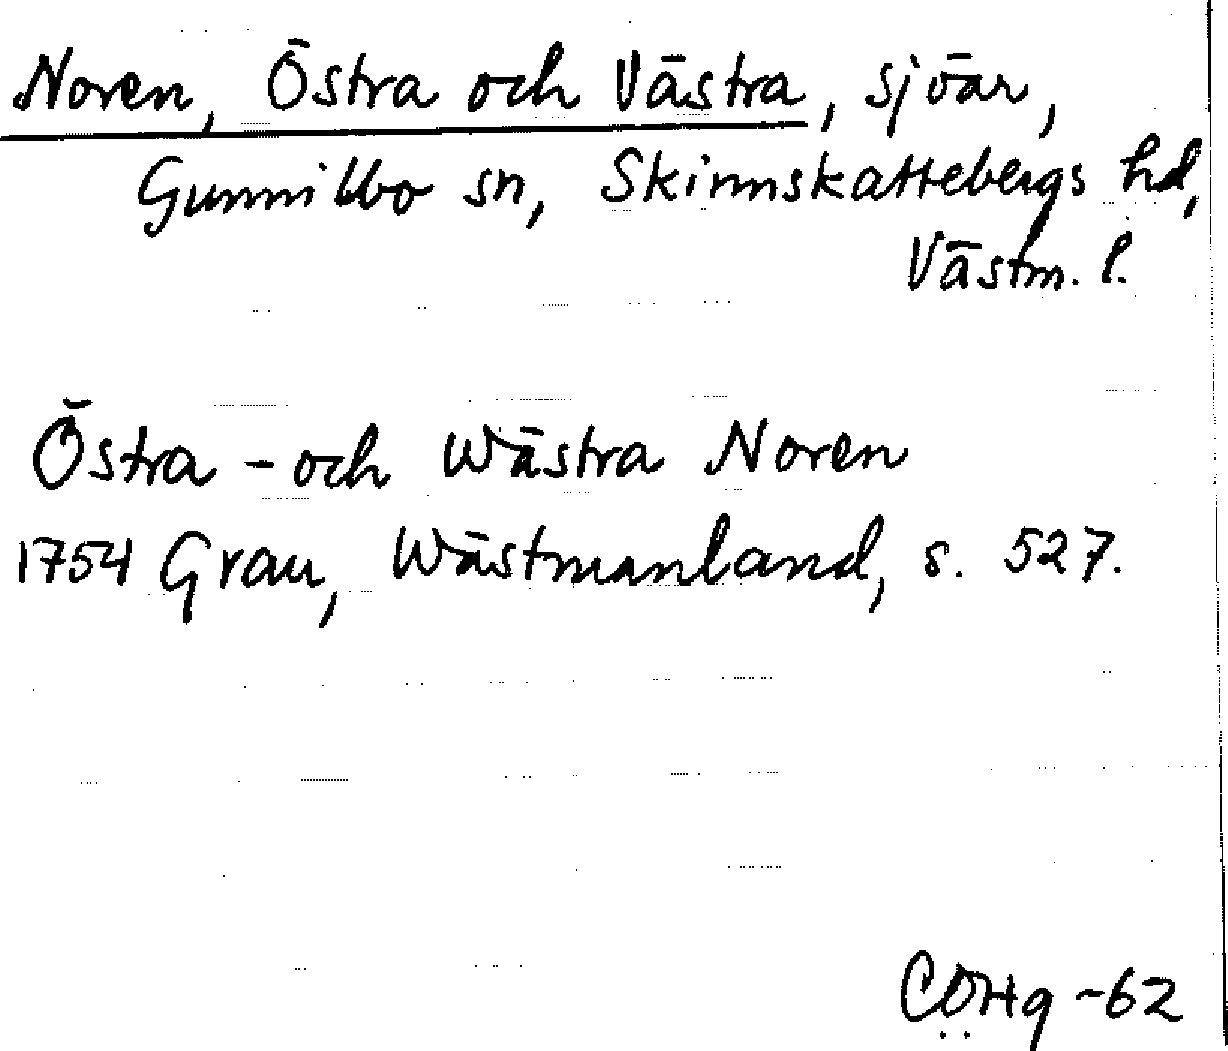 Noren, Östra och Västra, sjöar,
Gunnilbo sn, Skinnskattebergs hd,
Västm. l.
Östra - och Wästra Noren
1754 Grau, Wästmanland, s. 527.
CÖHg -62